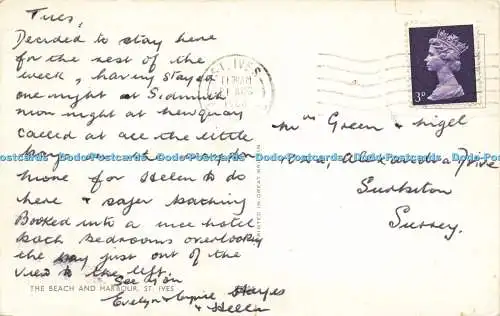 Tues,
Decided to stay here
for the rest of the
week, having stayed
one night at Sidmouth
mon night at newquay
called at all the little
more for Helen to do
here & safer bathing
Booked into a nice hotel
both bedrooms overlooking
the bay just out of the
view to the left.
See you
Evelyn & Hayes
& Helen
THE BEACH AND HARBOUR, ST. IVES
PRINTED IN GREAT BRITAIN
ST. IVES
AUG
3D
Mrs Green & Nigel
Alexandra Drive
Surbiton
Surrey.
Dodo-Postcards Dodo-Postcards Dodo-Postcards Dodo-Postcards Dodo-Postcards Dodo-Postcards